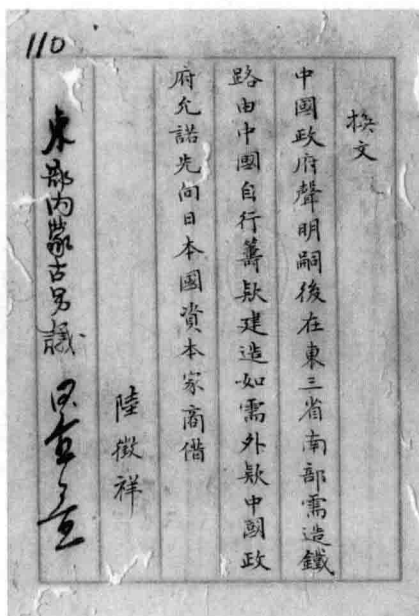 110
換文
中國政府聲明嗣後在東三省南部需造鐵
路由中國自行籌款建造如需外款中國政
府允諾先向日本國資本家商借
陸徵祥
東部內蒙古另議